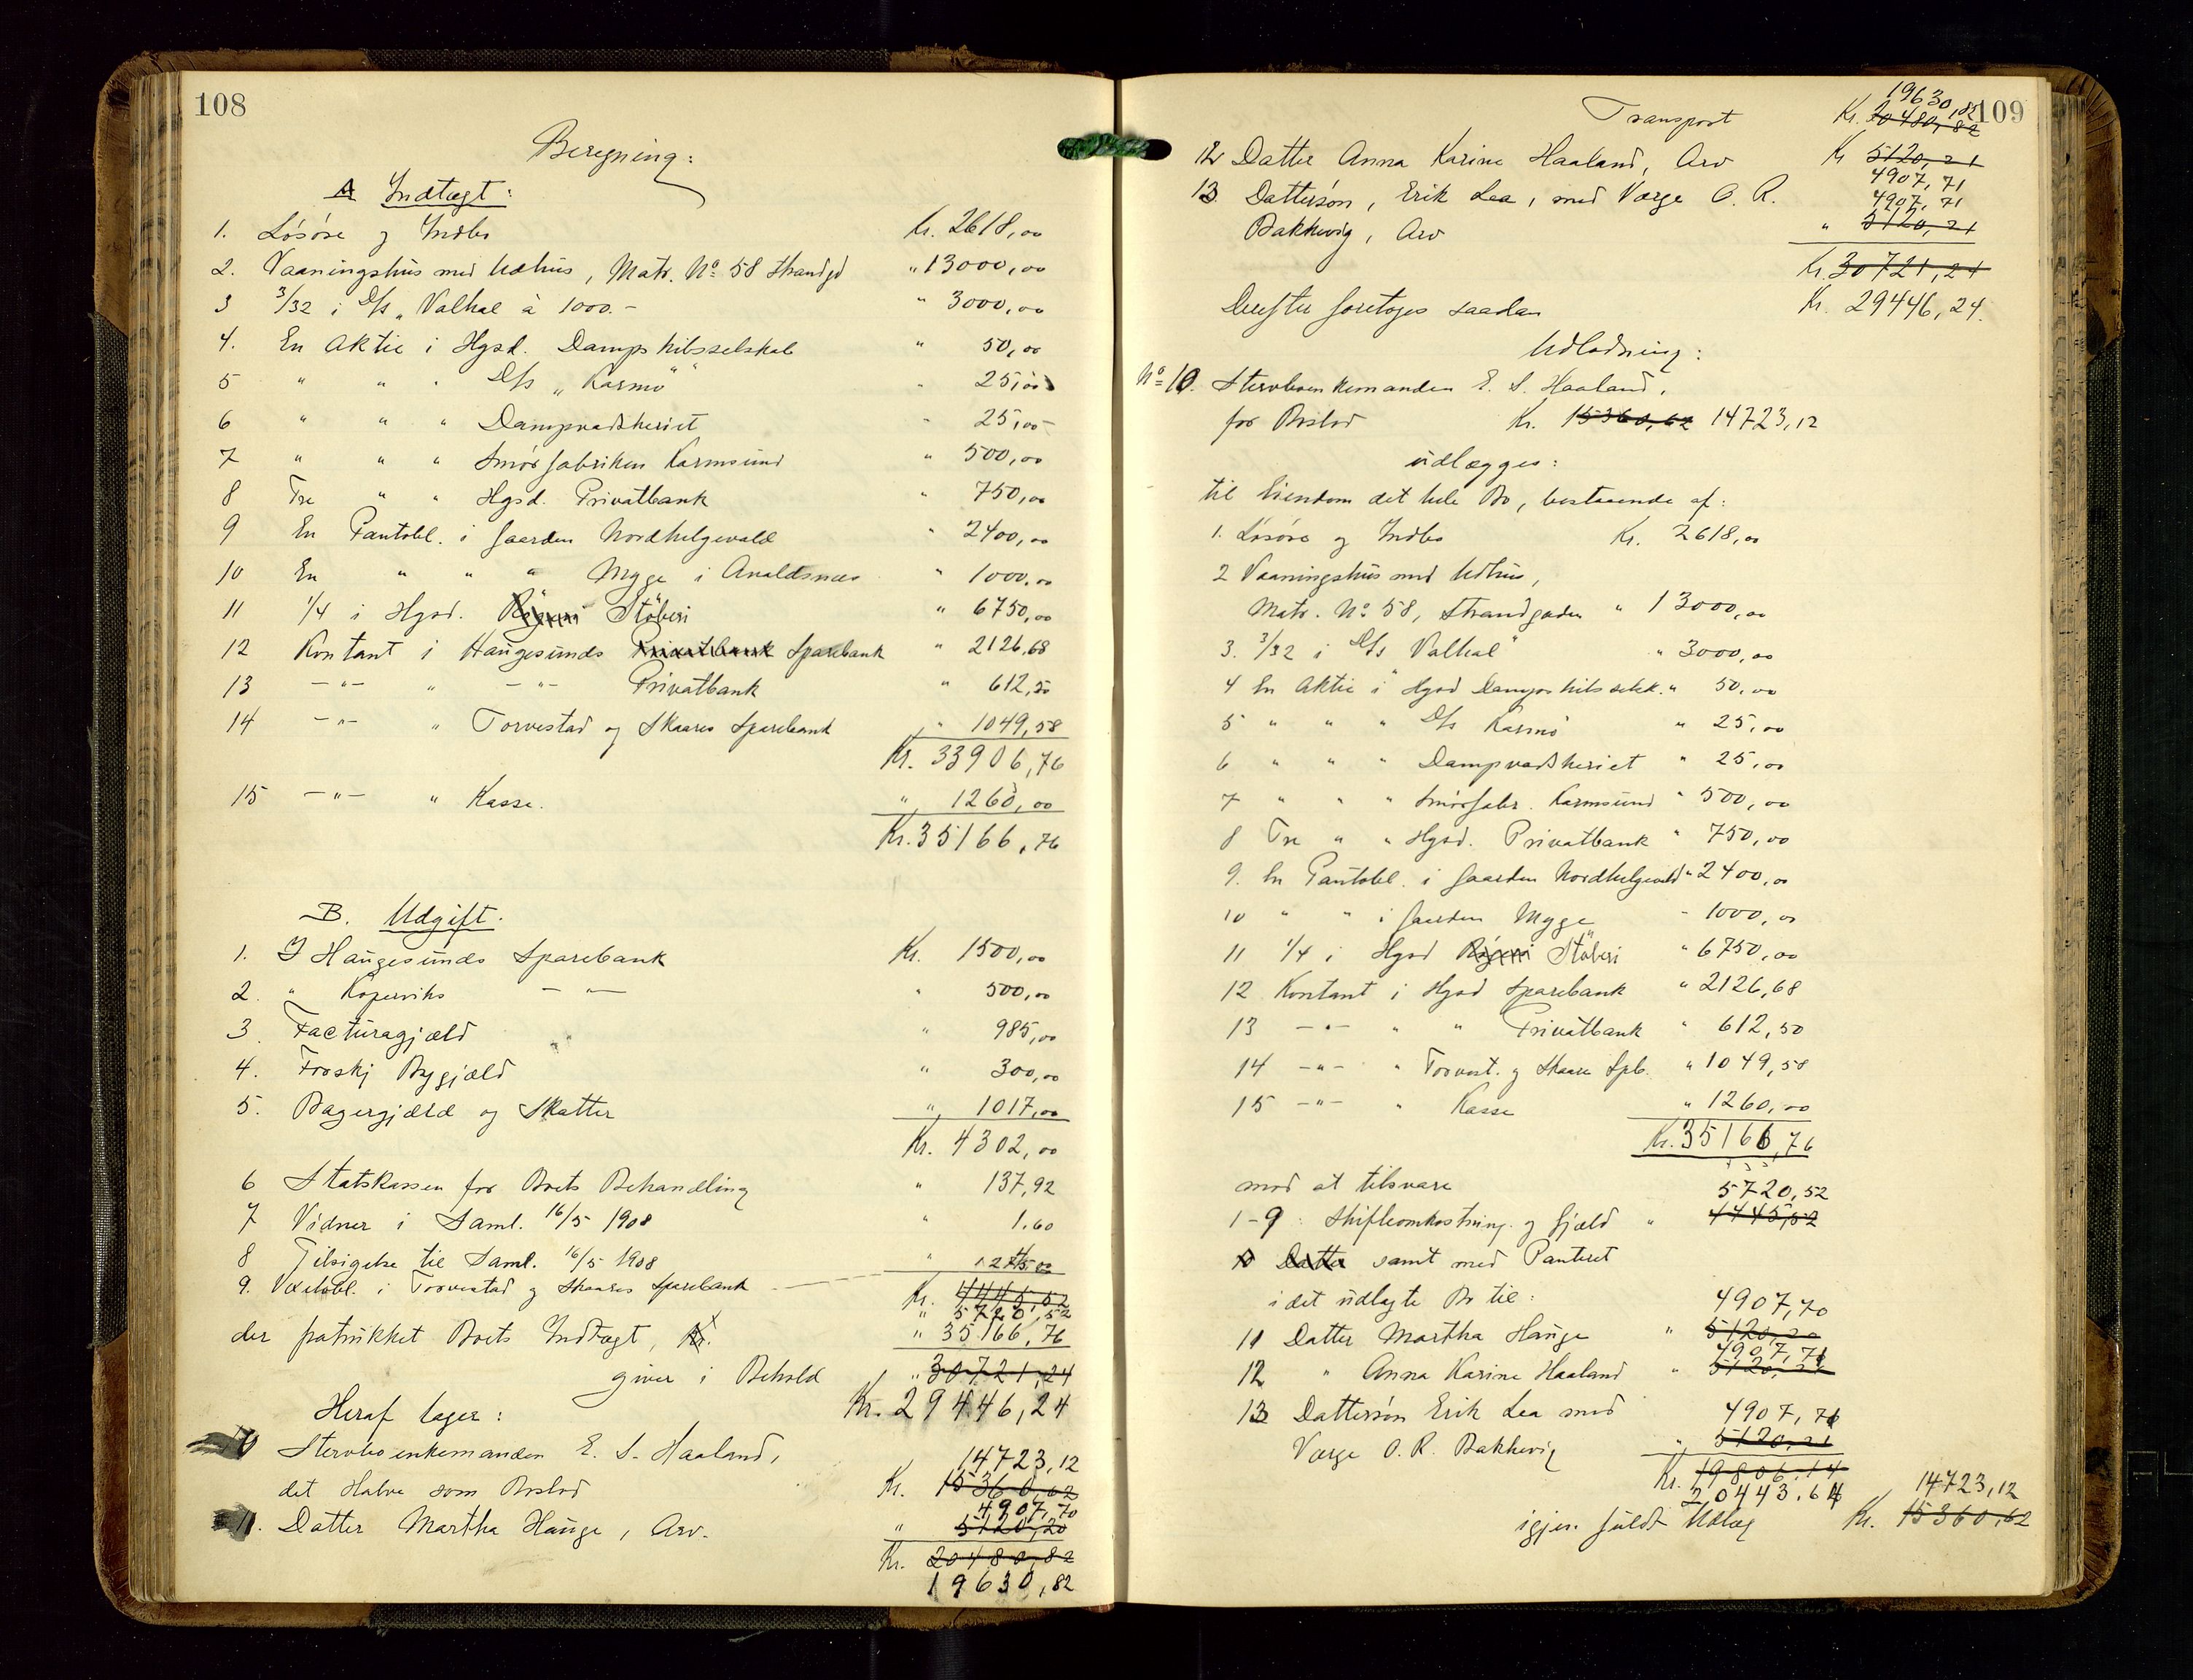 108
Beregning:
A Indtægt:
1. Løsøre og Indbo Kr. 2618,00
2. Vaaningshus med Udhus, Matr. No 58 Strandgd " 13000,00
3 3/32 i D/s „Valhal à 1000.- " 3000,00
4. En Aktie i Hgsd. Dampskibsselskab " 50,00
5 " " " D/s „Karmø" " 25,00
6 " " " Dampvadskeriet " 25,00
7 " " " Smørfabriken Karmsund " 500,00
8 Tre " " Hgsd. Privatbank " 750,00
9 En Pantobl. i Gaarden Nordhelgevald " 2400,00
10 En " " " Mygge i Avaldsnæs " 1000,00
11 1/4 i Hgsd. Røgeri Støberi " 6750,00
12 Kontant i Haugesunds Privatbank Sparebank " 2126,68
13 -"- " -"- Privatbank " 612,50
14 -"- " Torvestad og Skaares Sparebank " 1049,58
Kr. 33906,76
15 -"- " Kasse. " 1260,00
Kr. 35166,76
B. Udgift.
1. I Haugesunds Sparebank Kr. 1500,00
2. " Koperviks -"- " 500,00
3. Facturagjæld " 985,00
4. Forskj Bygjæld " 300,00
5. Bagergjæld og Skatter " 1017,00
Kr. 4302,00
6 Statskassen for Boets Behandling " 137,92
7 Vidner i Saml. 16/5 1908 " 1.60
8 Tilsigelse til Saml. 16/5 1908
9. Vexelobl. i Torvestad og Skaares Sparebank Kr. 4445,52
" 5720,52
der fratrukket Boets Indtægt, Kr. " 35166,76
giver i Behold " 30721,24
Heraf tager: Kr. 29446,24
10 Stervboenkemanden E. S. Haaland, 14723,12
det Halve som Boslod Kr. 15360,62
4907,70
11. Datter Martha Hauge, Arv. " 5120,20
Kr. 20480,82
19630,82
109
19630,82
Transport Kr. 20480,82
12 Datter Anna Karine Haaland, Arv Kr 5120,21
4907,71
13 Dattersøn, Erik Lea, med Værge O. R. 4907,71
Bakkevig, Arv " 5120,21
Kr. 30721,24
Derefter foretoges saadan Kr. 29446,24.
Udlodning:
No 10. Stervboenkemanden E. S. Haaland,
for Boslod Kr. 15360,62 14723,12
udlægges:
til Eiendom det hele Bo, bestaaende af:
1. Løsøre og Indbo Kr. 2618,00
2 Vaaningshus med Udhus,
Matr. No 58, Strandgaden " 13000,00
3. 3/32 i D/s Valhal" " 3000,00
4 En Aktie i Hgsd Dampskibsselsk. " 50,00
5 " " " D/s Karmø " 25,00
6 " " " Dampvadskeriet " 25,00
7 " " " Smørfabr. Karmsund " 500,00
8 Tre " " Hgsd. Privatbank " 750,00
9. En Pantobl. i Gaarden Nordhelgevald " 2400,00
10 " " i Gaarden Mygge " 1000,00
11 1/4 i Hgsd Røgeri Støberi " 6750,00
12 Kontant i Hgsd Sparebank " 2126,68
13 -"- " " Privatbank " 612,50
14 -"- " Torvest. og Skaare Spb. " 1049,58
15 -"- " Kasse " 1260,00
Kr. 35166,76
mod at tilsvare 5720,52
1-9: Skifteomkostning. og Gjæld " 4445,52
10 Datter samt med Panteret
i det udlagte Bo til: 4907,70
11 Datter Martha Hauge " 5120,20
4907,71
12 " Anna Karine Haaland " 5120,21
13 Dattersøn Erik Lea med 4907,71
Værge O. R. Bakkevig " 5120,21
Kr. 19806.14
20443.64 14723,12
igjen fuldt Udlæg Kr. 15360,62